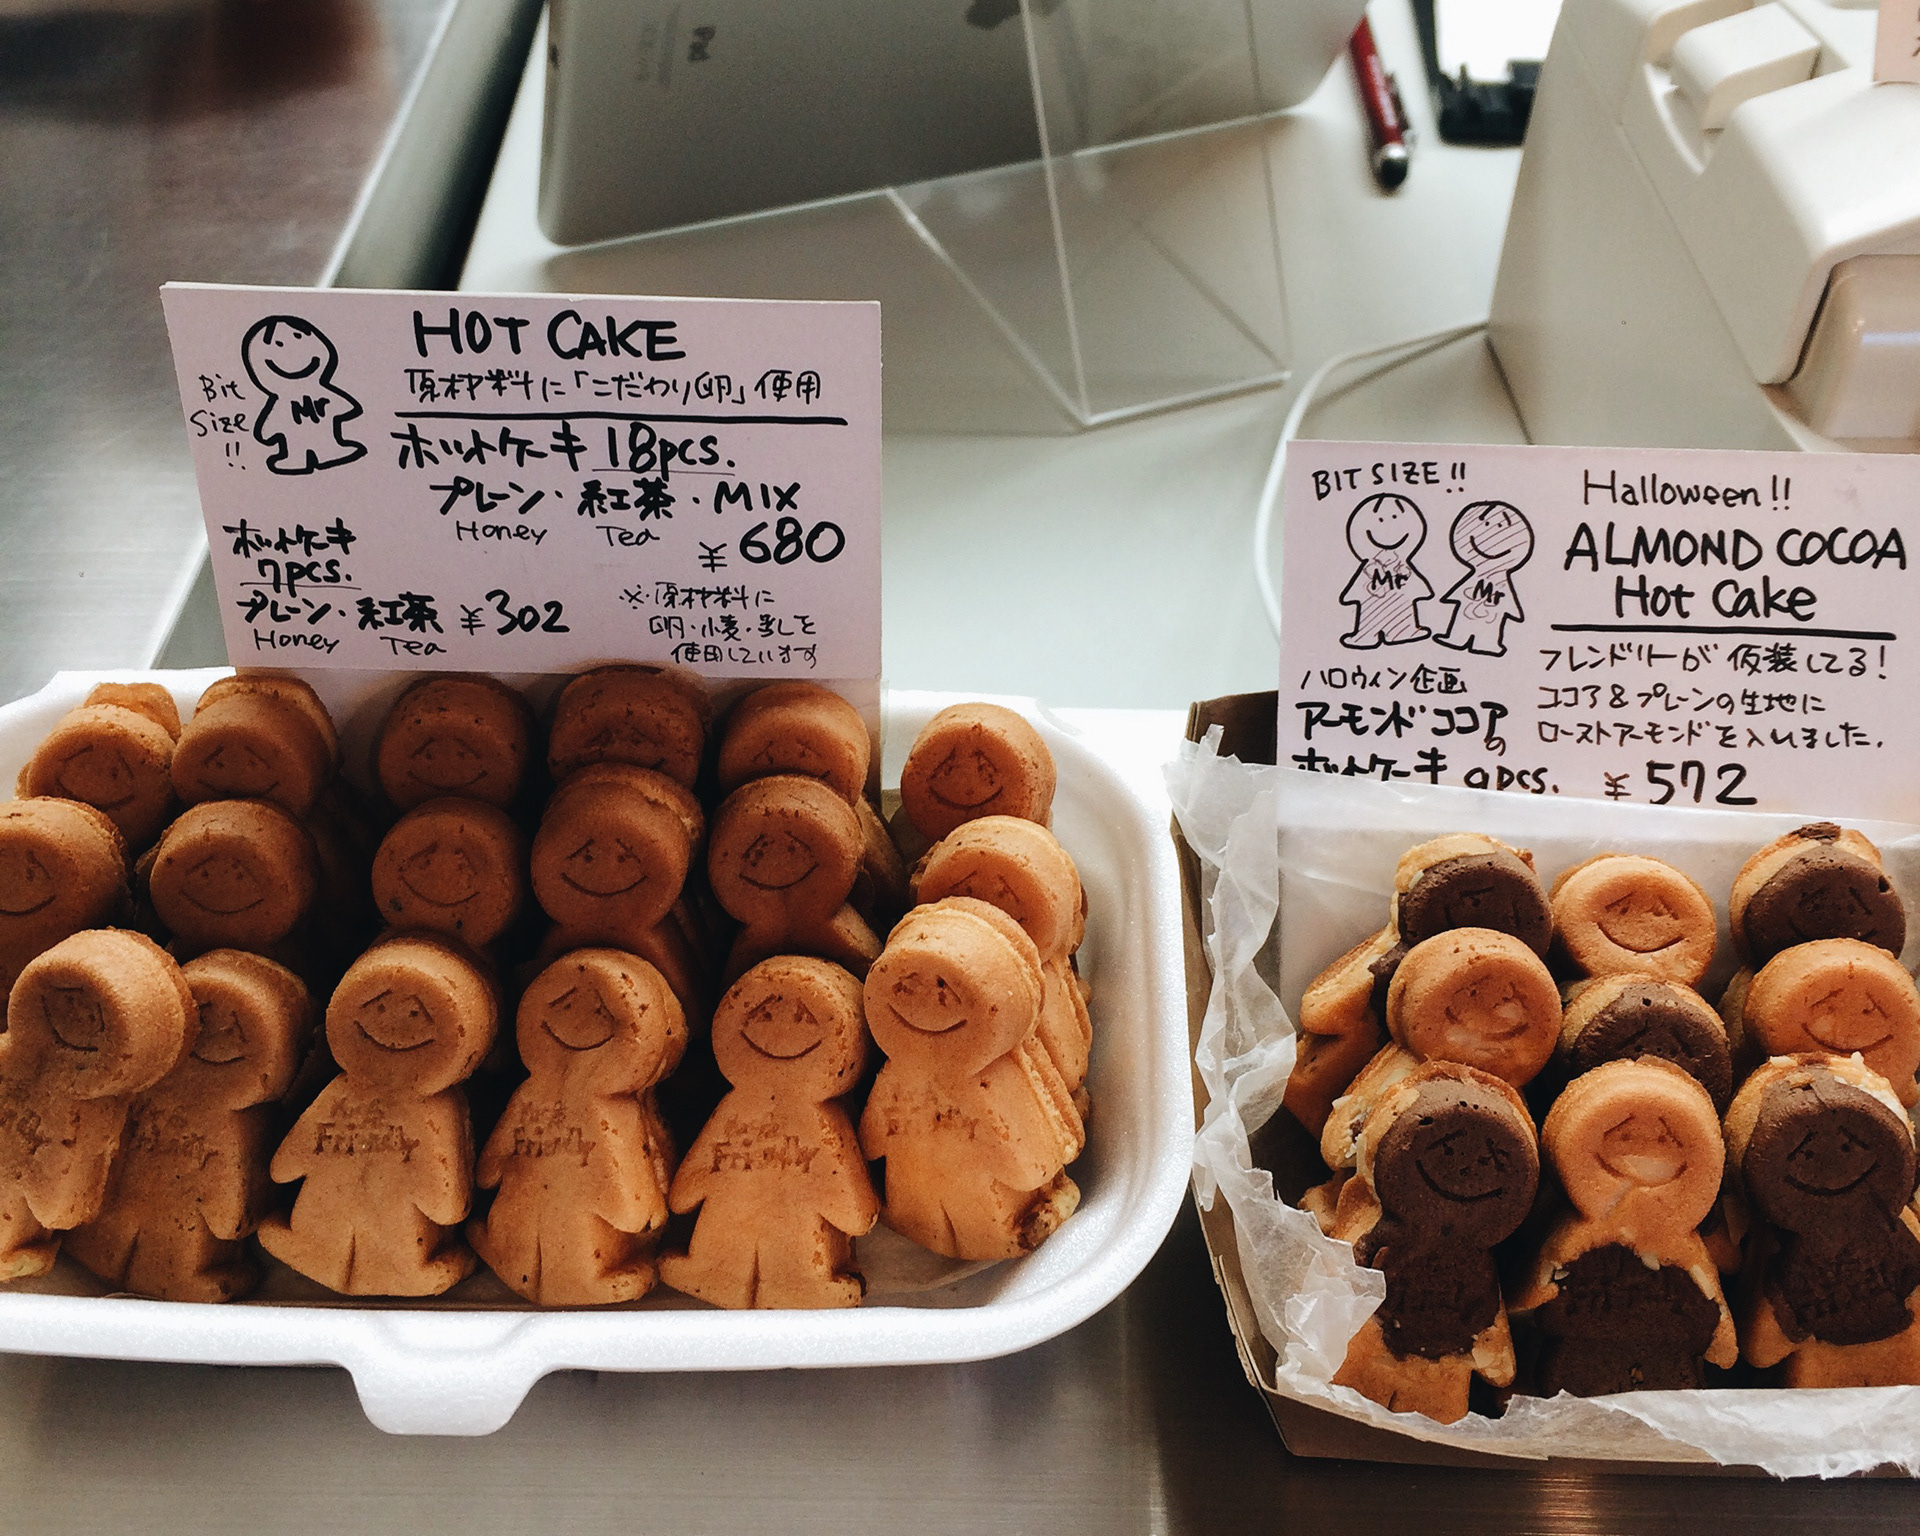 iPad
HOT CAKE
原材料に「こだわり卵」使用
Bit
Size
!!
Mr
ホットケーキ 18pcs.
プレーン・紅茶・MIX
Honey Tea
¥680
ホットケーキ
7pcs.
プレーン・紅茶 ¥302
Honey Tea
※原材料に
卵・小麦・乳を
使用しています
BIT SIZE!!
Mr Mr
Halloween!!
ALMOND COCOA
Hot Cake
フレンドリーが仮装してる!
ココア&プレーンの生地に
ローストアーモンドを入れました.
ハロウィン企画
アーモンドココア
の
ホットケーキ 9pcs. ¥572
Friendly
Friendly
Friendly